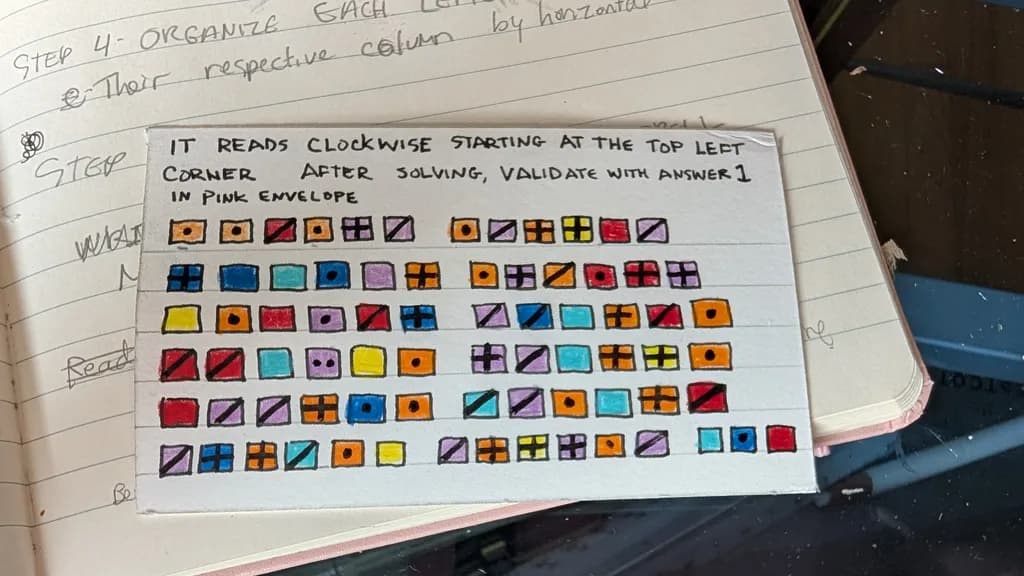 STEP 4 - ORGANIZE EACH
Their respective column by horizontal
STEP
IT READS CLOCKWISE STARTING AT THE TOP LEFT
CORNER AFTER SOLVING, VALIDATE WITH ANSWER 1
IN PINK ENVELOPE
Read
Be